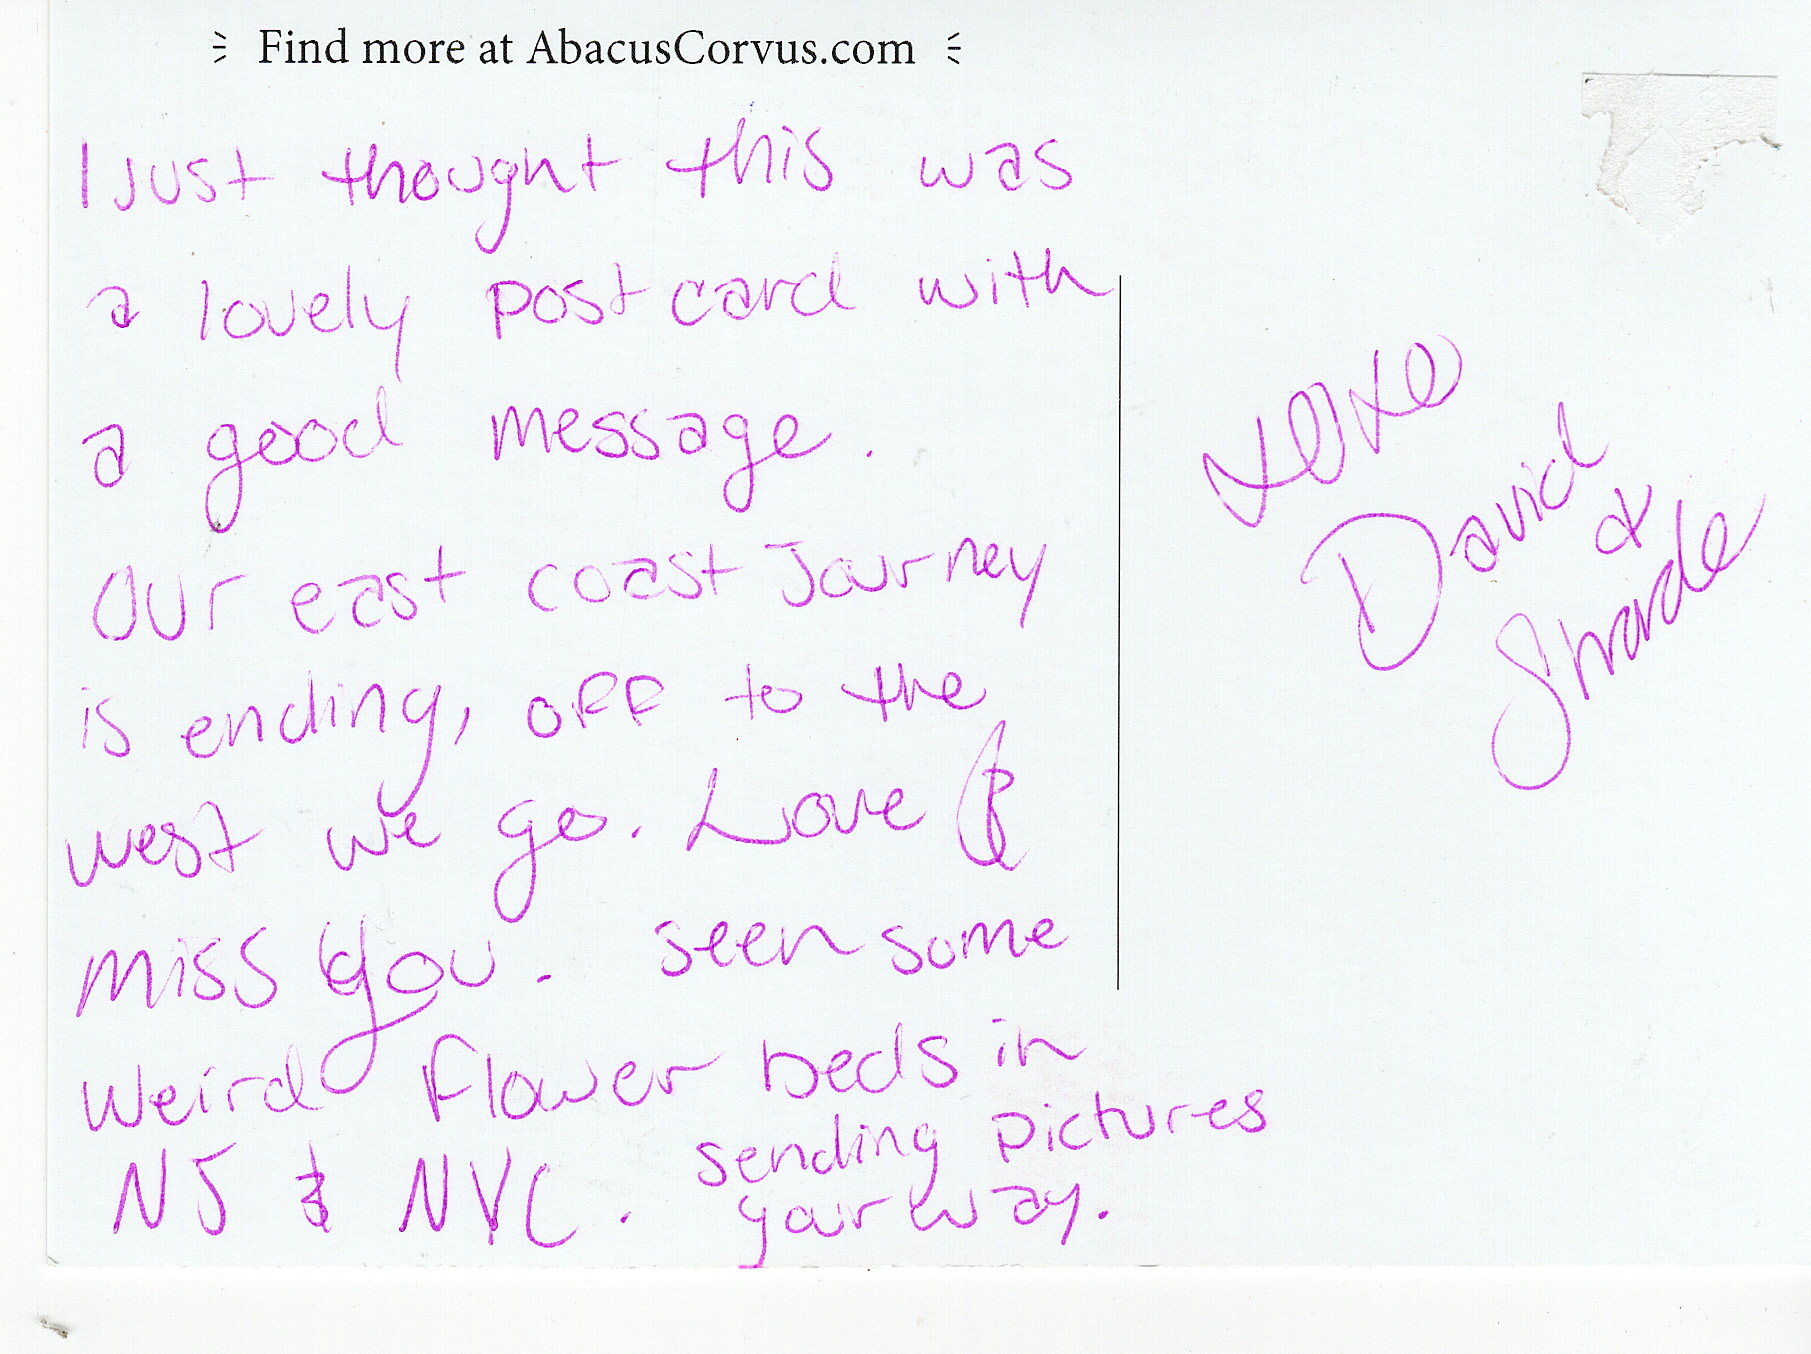 Find more at AbacusCorvus.com
I just thought this was
a lovely postcard with
a good message.
Our east coast Journey
is ending, off to the
west we go. Love &
miss you. seen some
weird flower beds in
NJ & NYC. sending pictures
your way.
xoxo
David
&
Sharde